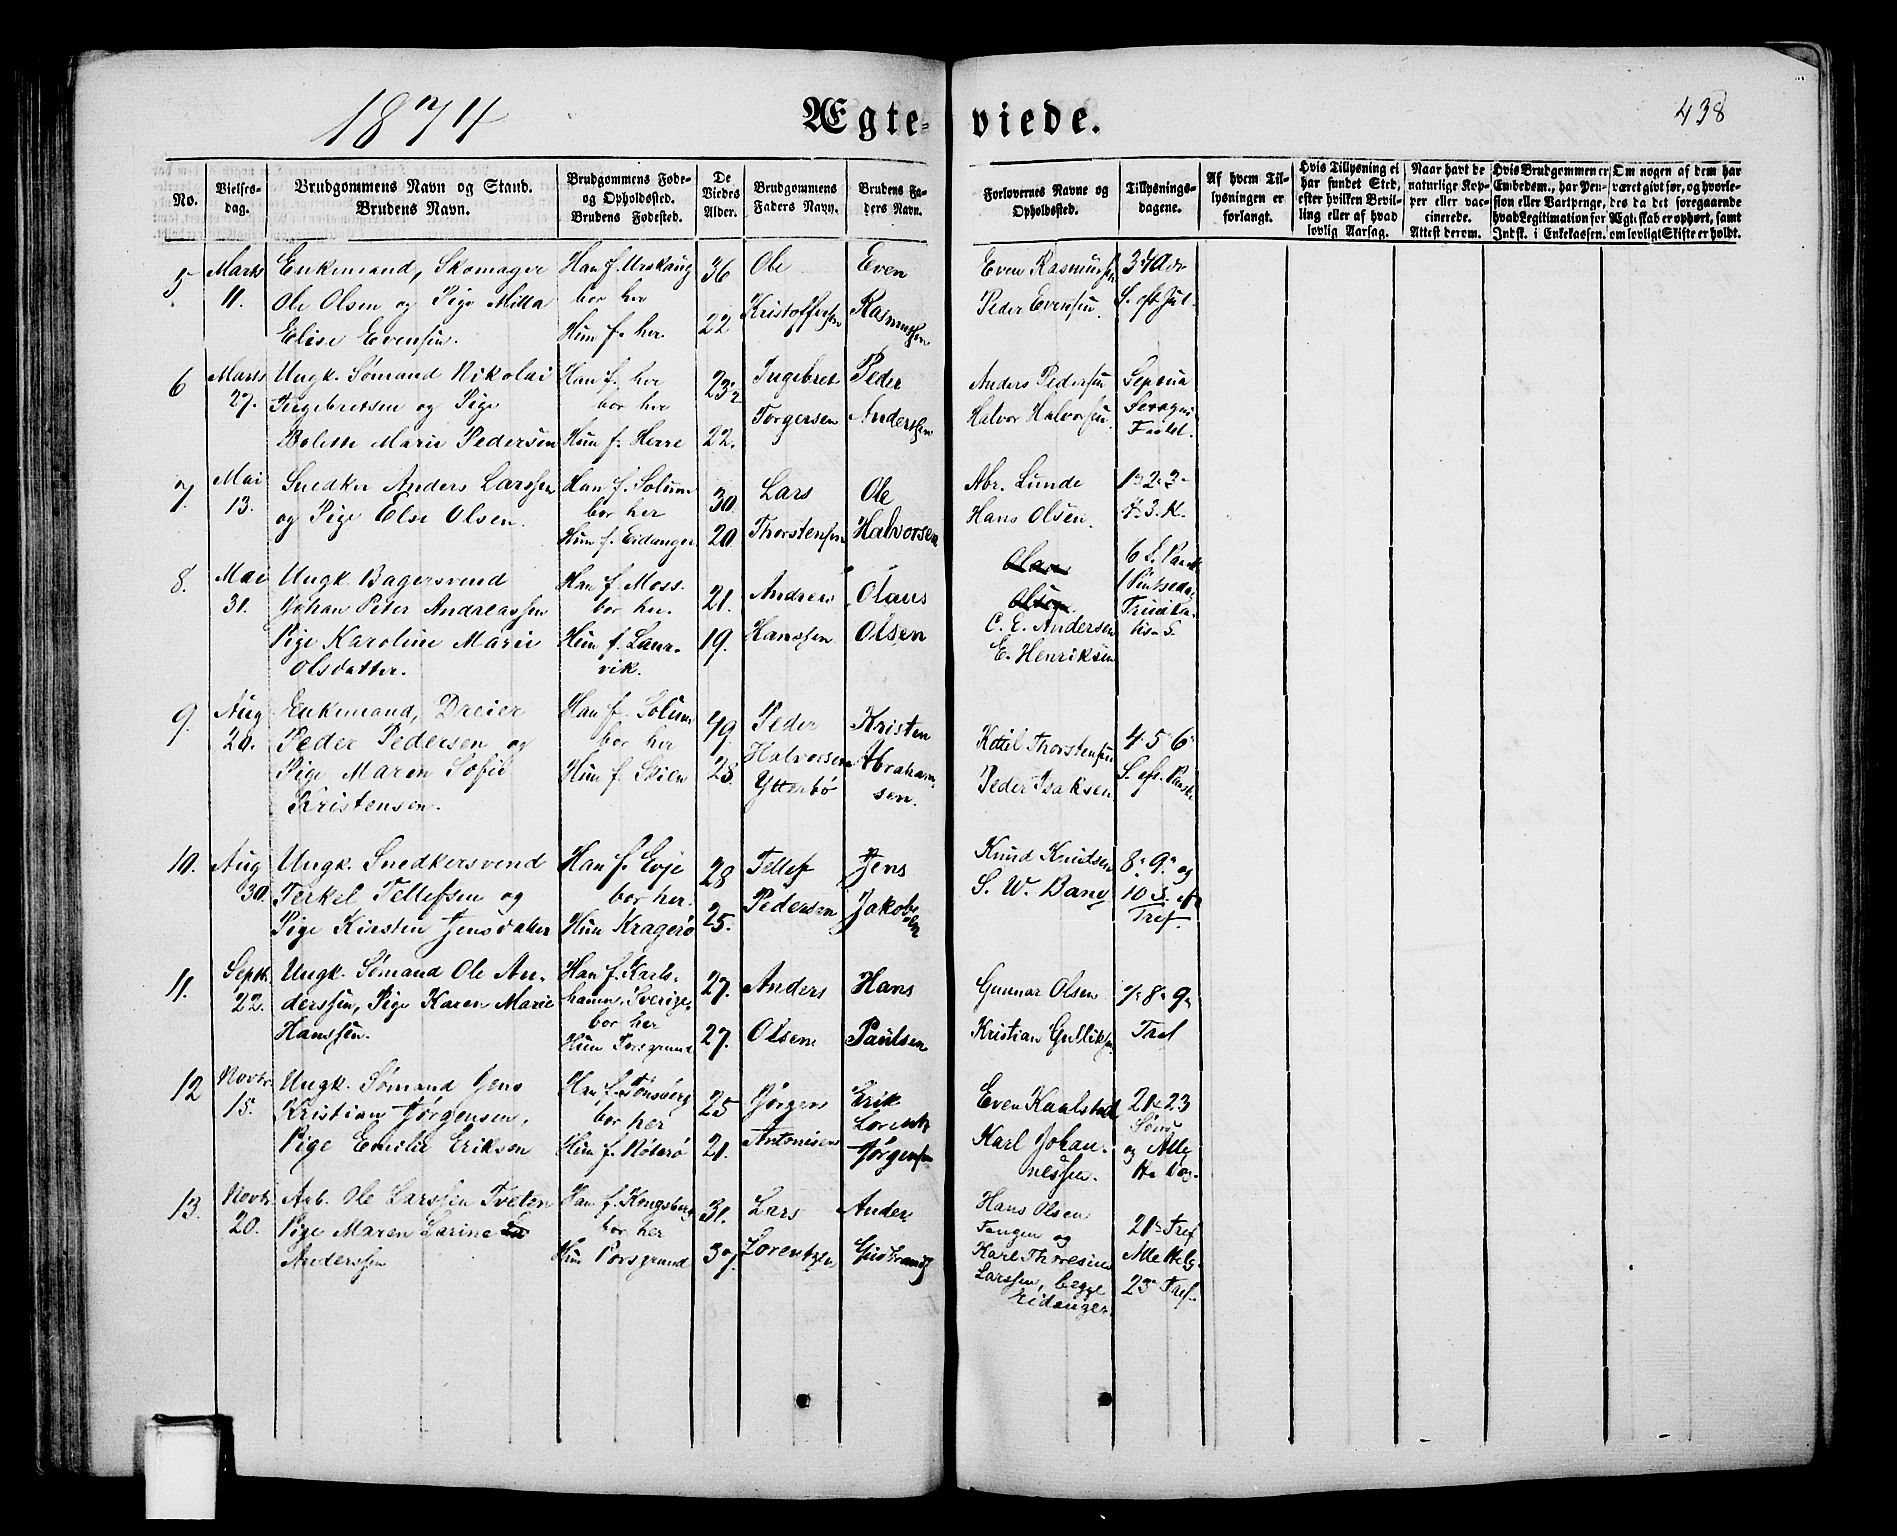 1874
Ægte-viede.
438
No.
Vielses-
dag.
Brudgommens Navn og Stand.
Brudens Navn.
Brudgommens Føde-
og Opholdssted.
Brudens Fødested.
De
Viedes
Alder.
Brudgommens
Faders Navn.
Brudens Fa-
ders Navn.
Forlovernes Navne og
Opholdssted.
Tillysnings-
dagene.
Af hvem Til-
lysningen er
forlangt.
Hvis Tillysning ei
har fundet Sted,
efter hvilken Bevil-
ling eller af hvad
lovlig Aarsag.
Naar havt de
naturlige Kop-
per eller vac-
cinerede.
Attest derom.
Hvis Brudgommen er
Embedsm., har Pen-
sion eller Vartpenge,
hvad Legitimation for
Indsk. i Enkekassen.
Om nogen af dem har
været givt før, og hvorle-
des da det foregaaende
Ægteskab er ophørt, samt
om lovligt Skifte er holdt.
5.
Marts
11.
Enkemand, Skomager
Ole Olsen og Pige Milla
Elise Evensen.
Han f. Urskaug
bor her
Hun f. her
36
22
Ole
Kristoffersen
Even
Rasmussen
Even Rasmussen
Peder Evensen.
3 4 Adv
S. eft Jul.
6
Marts
27.
Ungk. Sømand Nikolai
Ingebretsen og Pige
Bolette Marie Pedersen
Han f. her
bor her
Hun f. Herre
23½
22.
Ingebret
Torgersen
Peder
Anderssen
Anders Pedersen
Halvor Halvorsen
Septua
Sexages
Fastel.
7.
Mai
13.
Snedker Anders Larssen
og Pige Else Olsen.
Han f. Solum
bor her
Hun f. Eidanger
30
20
Lars
Thorstensen
Ole
Halvorsen
Abr. Lunde
Hans Olsen.
1. 2. 3.
8.
Mai
31.
Ungk Bagersvend
Johan Peter Andreassen
Pige Karoline Marie
Olsdatter.
Han f. Moss.
bor her.
Hun f. Laur-
vik.
21.
19.
Andreas
Hanssen
Olaus
Olsen
C. E. Andersen
E. Henriksen
6 S. Paask
1 Pintsedag
Trinita-
tis S.
9.
Aug
20.
Enkemand, Dreier
Peder Pedersen og
Pige Maren Sofie
Kristensen.
Han f. Solum
bor her
Hun f. Skien
49
28
Peder
Halvorsen
Ytterbø
Kristen
Abraham-
sen.
Kettil Thorstensen
Peder Isaksen
4. 5. 6.
S. eft. Paaske
10.
Aug
30.
Ungk. Snedkersvend
Terkel Tellefsen og
Pige Kirsten Jensdatter
Han f. Evje
bor her.
Hun Kragerø
28
25.
Tellef
Pedersen
Jens
Jakobsen
Knud Knudsen
S. W. Bang
8. 9. og
10 S. eft
Tref.
11.
Septb.
22.
Ungk. Sømand Ole An-
derssen, Pige Karen Marie
Hanssen.
Han f. Karls-
hamn, Sverige,
bor her
Hun Porsgrund
27.
27.
Anders
Olsen
Hans
Paulsen
Gunnar Olsen
Kristian Gulliksen
7. 8. 9.
Tref
12
Novbr.
15.
Ungk. Sømand Jens
Kristian Jørgensen,
Pige Emilie Eriksen
Han f. Tønsberg
bor her
Hun f. Nøterø
25
21.
Jørgen
Antonisen
Erik
Lorentz
Jørgensen
Even Kaalstad
Karl Johan-
nessen.
21 & 23
Sønd
og Alle
He Dag.
13.
Novbr.
20.
Arb. Ole Larssen Tveten
Pige Maren Sarine
Anderssen
Han f. Kongsberg
bor her
Hun Porsgrund
31.
37.
Lars
Lorentzen
Anders
Gudbrands
Hans Olsen
Tangen og
Karl Thoresius
Larssen, begge
Eidanger.
21. Tref
Alle Helg.
23. Tref.